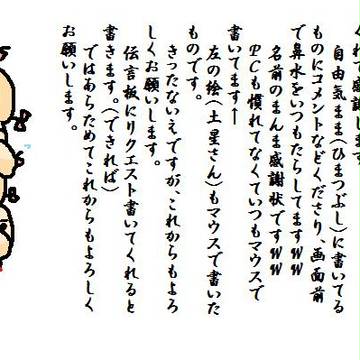 くれて感謝しま
自由気まま(ひまつぶし)に書いてる
ものにコメントなどくださり、画面前
で鼻水をいつもたらしてますWW
名前のまんま感謝状ですWW
PCも慣れてなくていつもマウスで
書いてますー
左の絵(土星さん)もマウスで書いた
ものです。
きったないえですが、これからもよろ
しくお願いします。
伝言板にリクエスト書いてくれると
書きます。(できれば)
ではあらためてこれからもよろしく
お願いします。